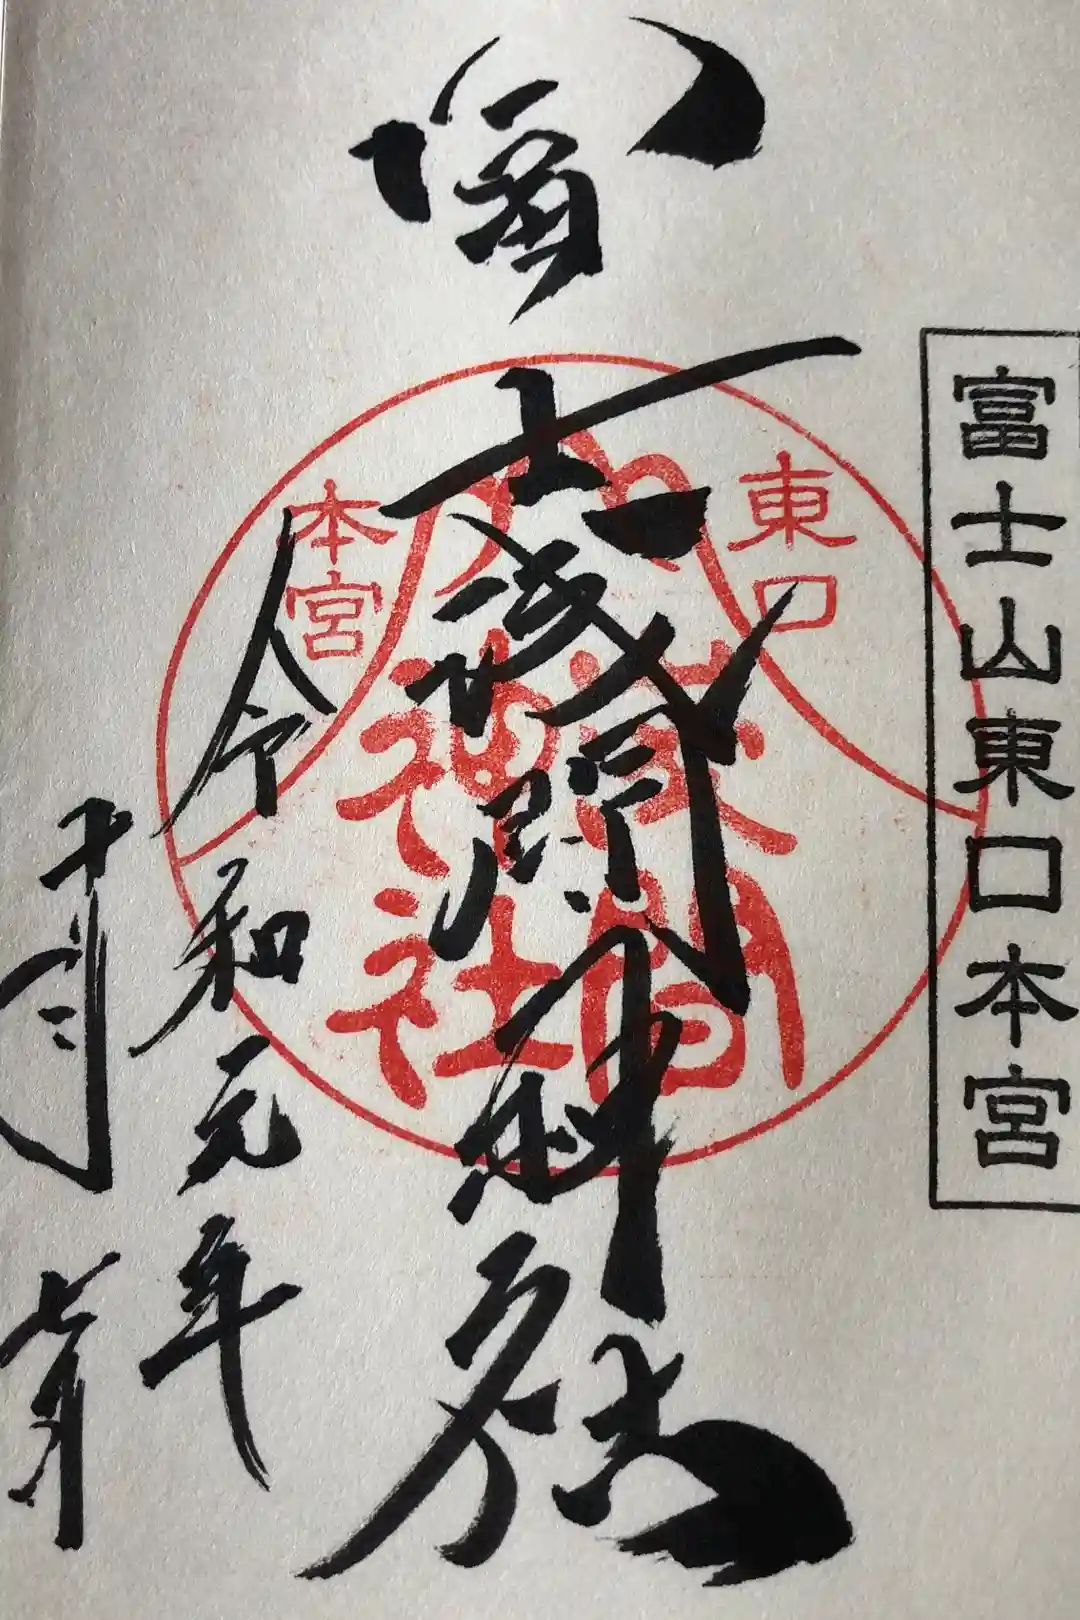 富士山東口本宮
富士浅間神社
東口
本宮
浅間
神社
令和元年
十月
七日